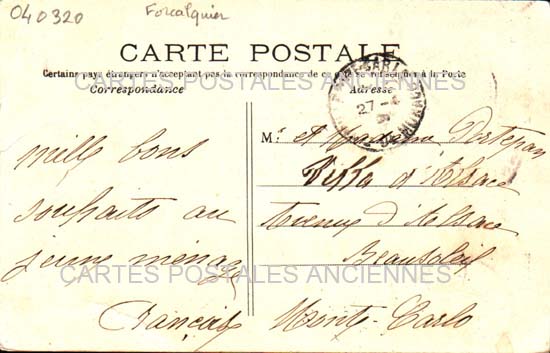 040320
Forcalquier
CARTE POSTALE
Certains pays étrangers n'acceptant pas la correspondance de ce côté se renseigner à la Poste
Correspondance
Adresse
27
mille bons
souhaits au
jeune ménage
Français
Mr et Madame
Villa d'Alsace
Avenue d'Alsace
Beausoleil
Monte-Carlo
CARTES POSTALES ANCIENNES
CARTES POSTALES ANCIENNES